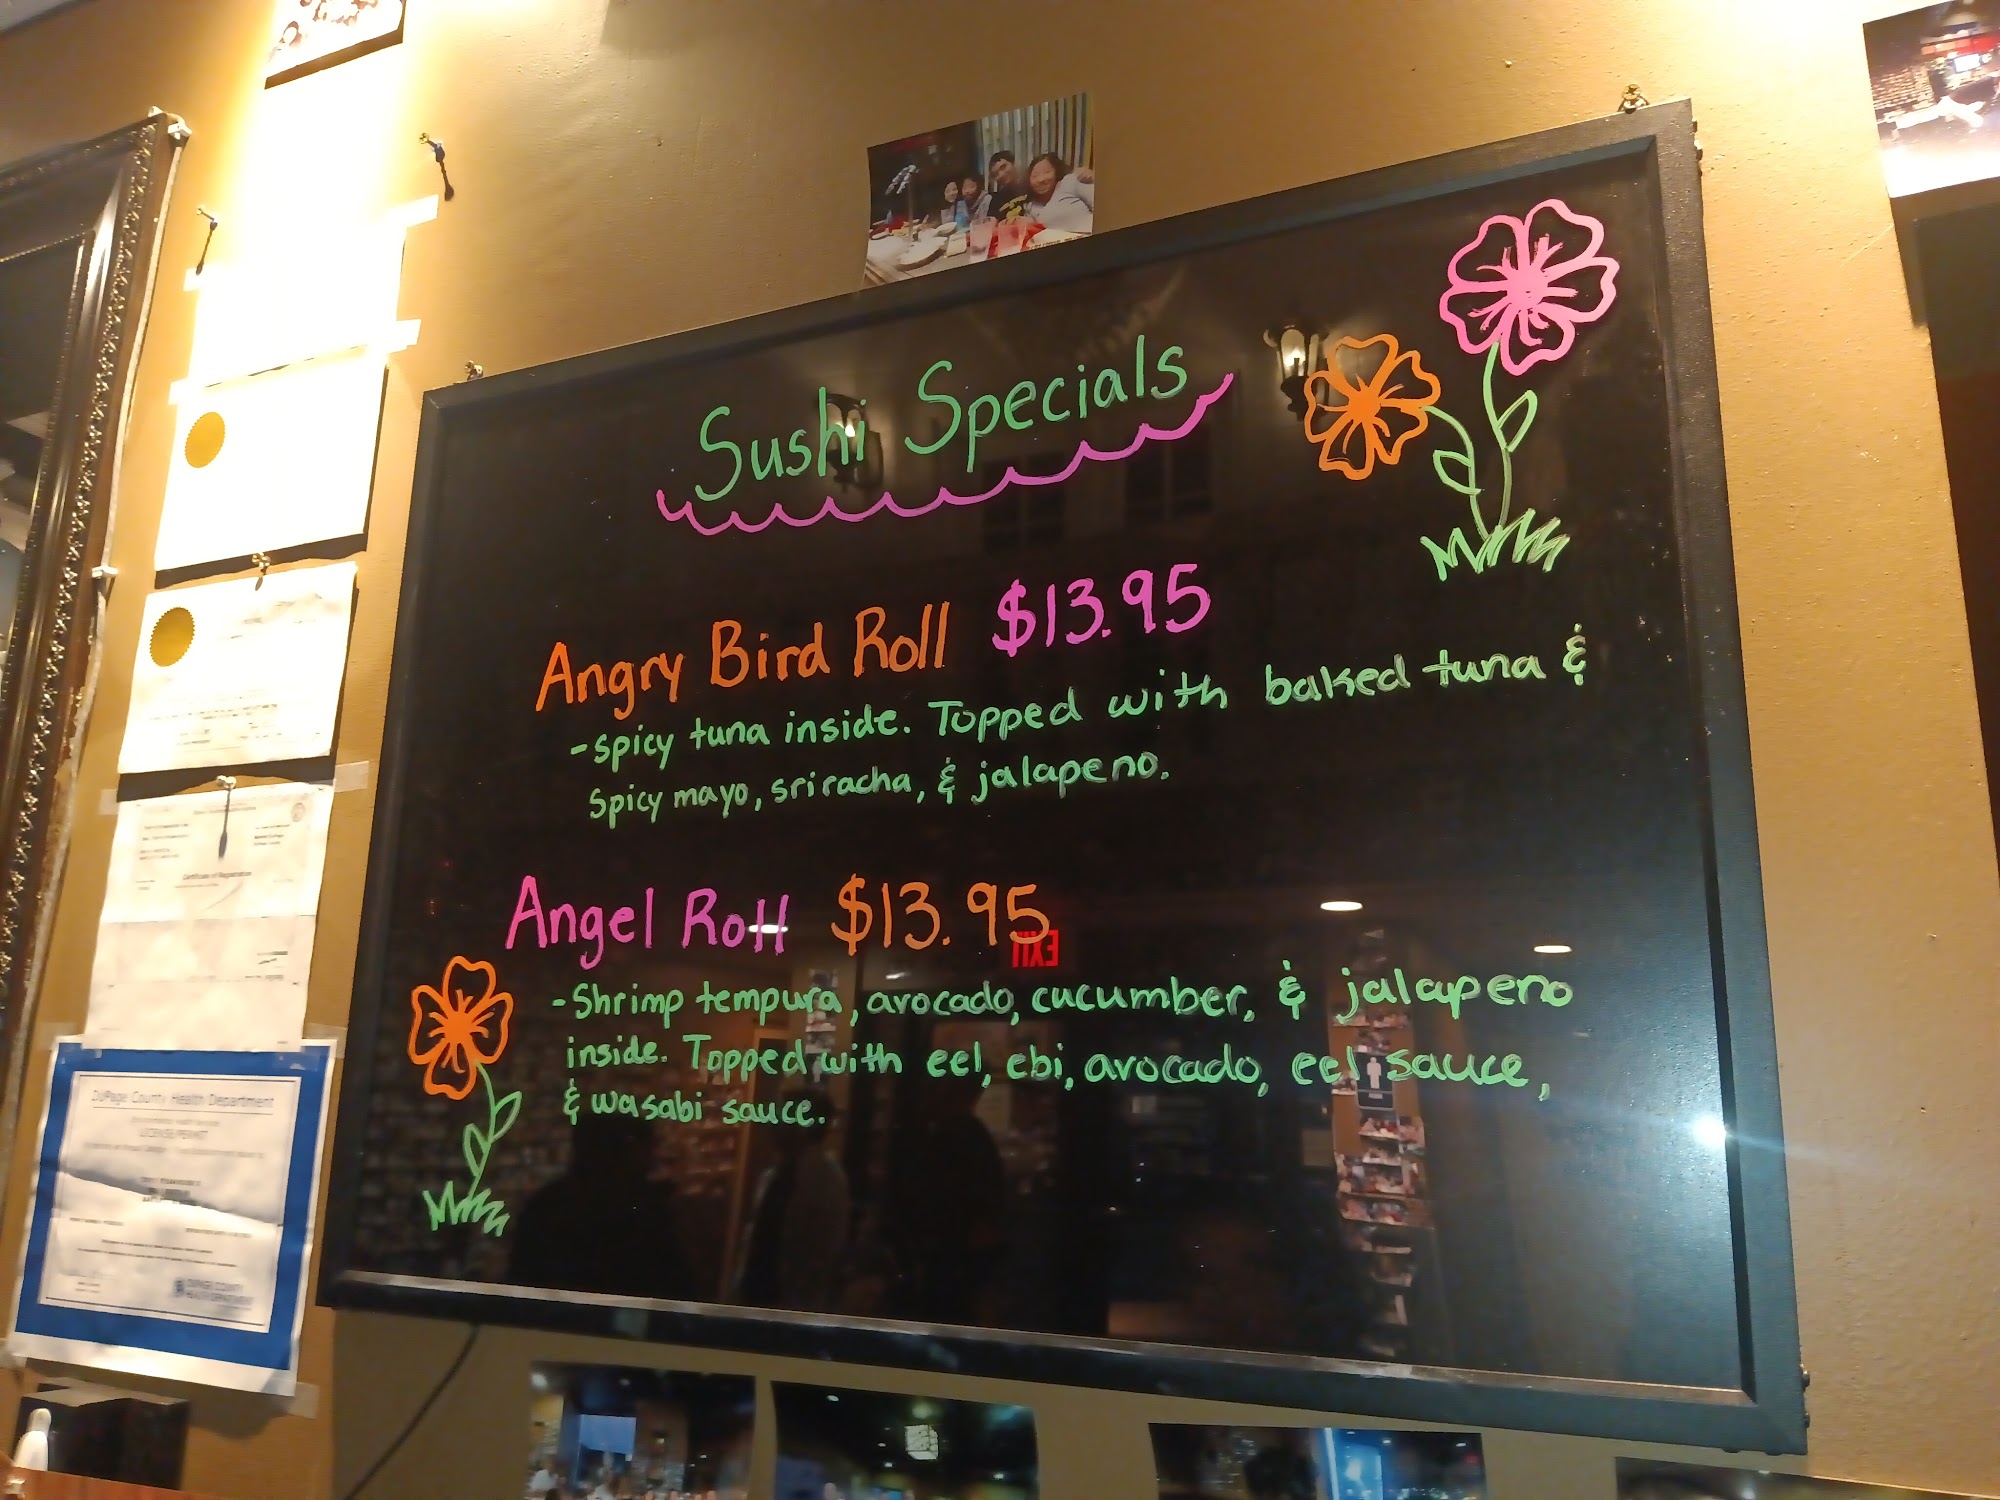 Sushi Specials
Angry Bird Roll $13.95
-spicy tuna inside. Topped with baked tuna &
spicy mayo, sriracha, & jalapeno.
Angel Roll $13.95
-Shrimp tempura, avocado, cucumber, & jalapeno
inside. Topped with eel, ebi, avocado, eel sauce,
& wasabi sauce.
EXIT
Certificate of Registration
DuPage County Health Department
LICENSE/PERMIT
DUPAGE COUNTY
HEALTH DEPARTMENT